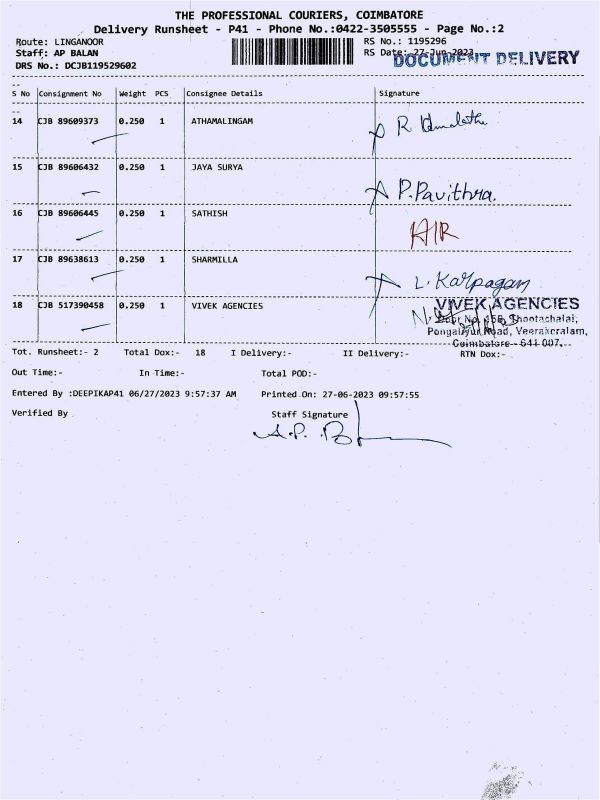 THE PROFESSIONAL COURIERS, COIMBATORE
Delivery Runsheet - P41 - Phone No.:0422-3505555 - Page No.:2
Route: LINGANOOR RS No.: 1195296
Staff: AP BALAN RS Date: 27-Jun-2023
DOCUMENT DELIVERY
DRS No.: DCJB119529602
S No Consignment No Weight PCS Consignee Details Signature
14 CJB 89609373 0.250 1 ATHAMALINGAM R
15 CJB 89606432 0.250 1 JAYA SURYA P. Pavithra.
16 CJB 89606445 0.250 1 SATHISH
17 CJB 89638613 0.250 1 SHARMILLA L. Karpagam
18 CJB 517390458 0.250 1 VIVEK AGENCIES VIVEK AGENCIES
Door No. Thootachalai,
Road, Veerakeralam,
Coimbatore - 641 007.
Tot. Runsheet:- 2 Total Dox:- 18 I Delivery:- II Delivery:- RTN Dox:-
Out Time:- In Time:- Total POD:-
Entered By :DEEPIKAP41 06/27/2023 9:57:37 AM Printed On: 27-06-2023 09:57:55
Verified By Staff Signature
A.P.